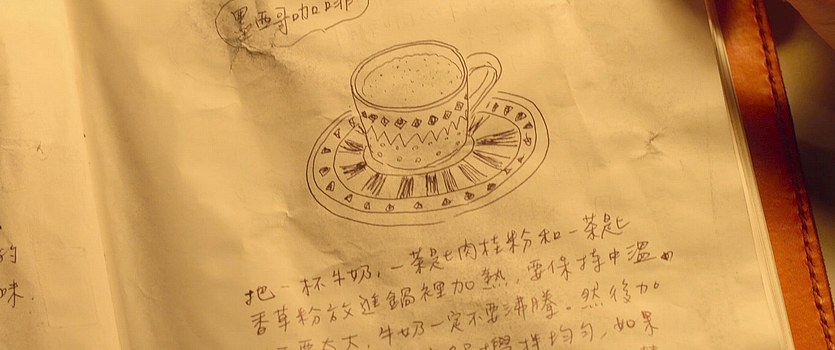 墨西哥咖啡
的
味.
把一杯牛奶,一茶匙肉桂粉和一茶匙
香草粉放進鍋裡加熱,要保持中溫。
要太大,牛奶一定不要沸騰。然後加
攪拌均勻,如果